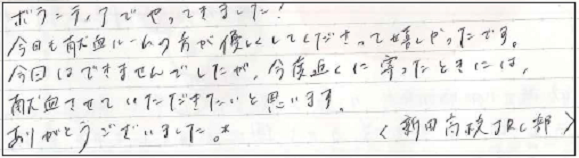 ボランティアでやってきました!
今日も献血ルームの方が優しくしてくださって嬉しかったです。
今回はできませんでしたが、今度近くに寄ったときには、
献血させていただきたいと思います。
ありがとうございました。* <新田高校JRC部>